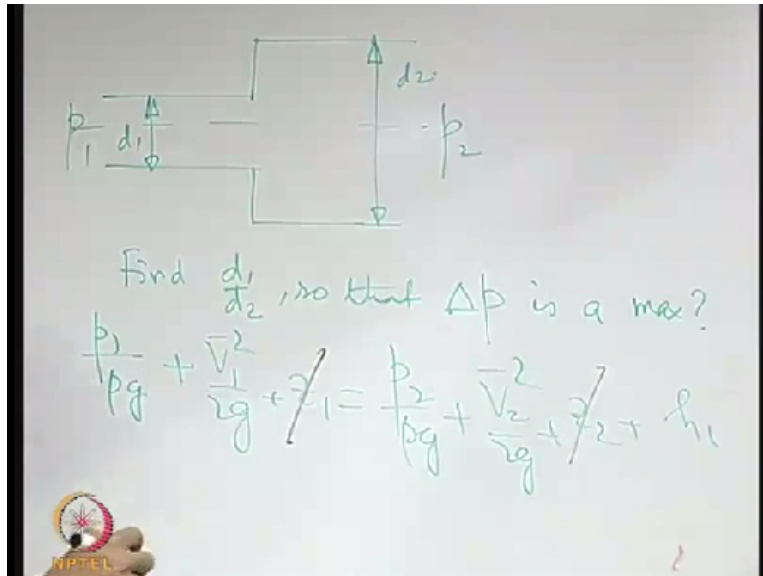 d₂
p₁ d₁ p₂
Find d₁/d₂, so that Δp is a max?
p₁/ρg + V̄₁²/2g + z₁ = p₂/ρg + V̄₂²/2g + z₂ + h₁
NPTEL